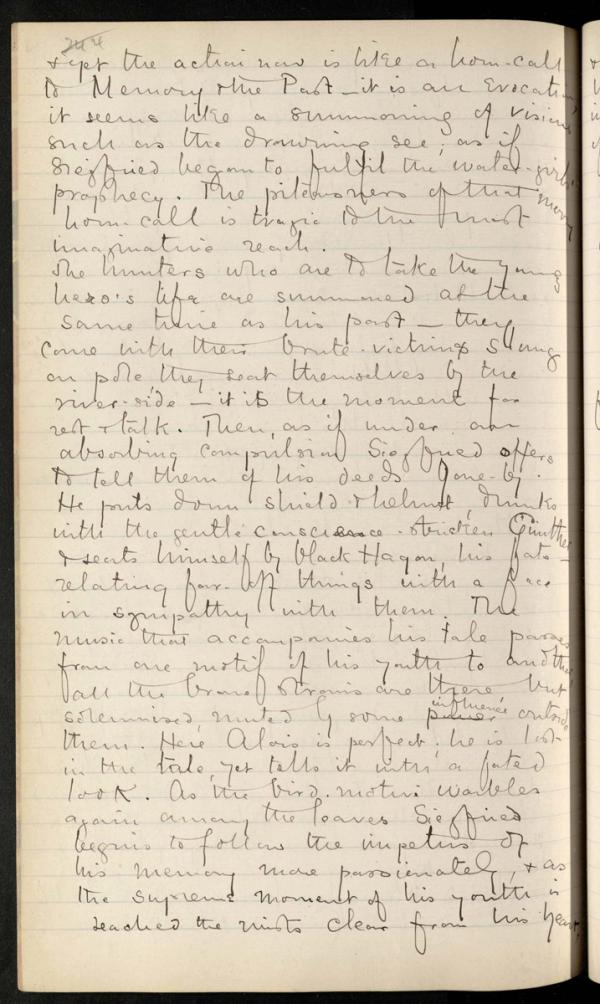 244
& yet the action now is like a horn-call
to Memory & the Past – it is an Evocation,
it seems like a summoning of visions
such as the drowning see; as if
Siegfried began to fulfil the water-girls'
prophecy. The piteousness of that merry
horn-call is tragic to the most
imaginative reach.
The hunters who are to take the young
hero's life are summoned at the
same time as his past – they
come with their brute-victims slung
on pole they seat themselves by the
river-side – it is the moment for
rest & talk. Then, as if under an
absorbing compulsion Siegfried offers
to tell them of his deeds gone-by.
He puts down shield & helmet, drinks
with the gentle conscience-stricken Günther
& seats himself by black Hagen, his fate –
relating far-off things with a face
in sympathy with them. The
music that accompanies his tale passes
from one motif of his youth to another
all the brave strains are there, but
solemnised, muted by some power influence outside
them. Here Alois is perfect; he is lost
in the tale, yet tells it with a fated
look. As the bird-motiv warbles
again among the leaves Siegfried
begins to follow the impetus of
his memory more passionately, & as
the supreme moment of his youth is
reached the mists clear from his heart,